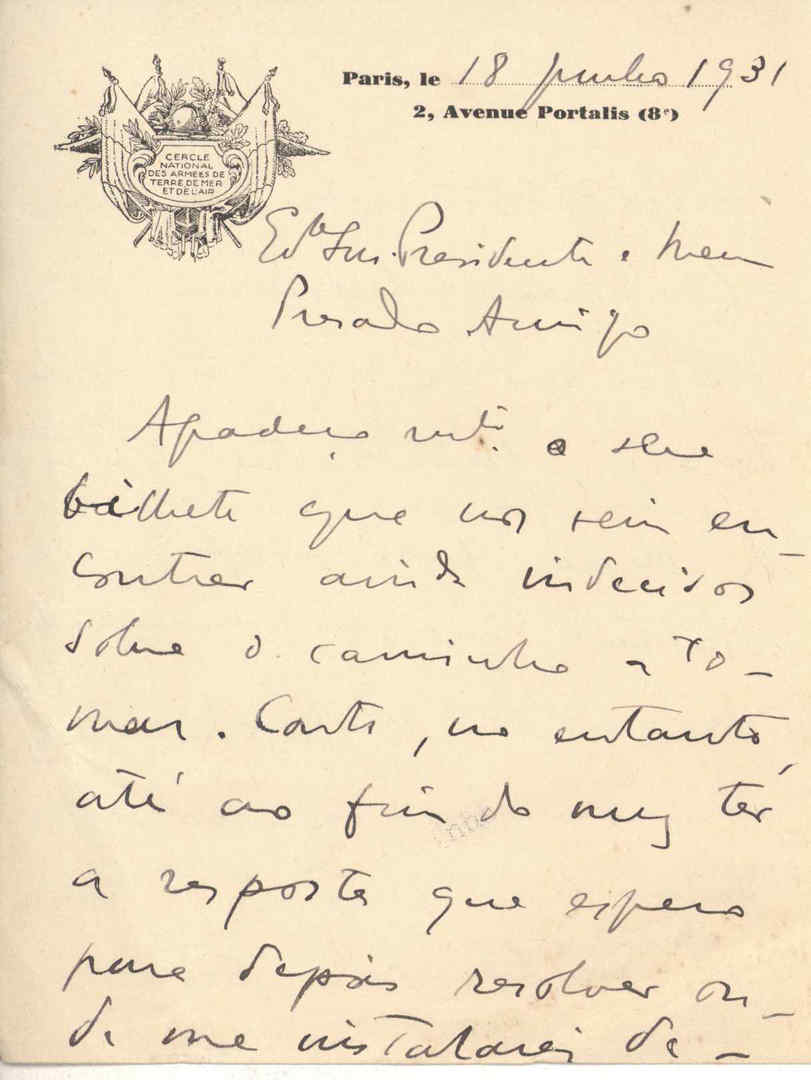 CERCLE
NATIONAL
DES ARMÉES DE
TERRE DE MER
ET DE L'AIR
Paris, le 18 junho 1931
2, Avenue Portalis (8e)
Snr. Presidente e meu
Presado Amigo
Agradeço mto. o seu
bilhete que nos vem en-
contrar ainda indecisos
sobre o caminho a to-
mar. Conto, no entanto,
até ao fim do mez ter
a resposta que espero
para depois resolver on-
de me instalarei de-